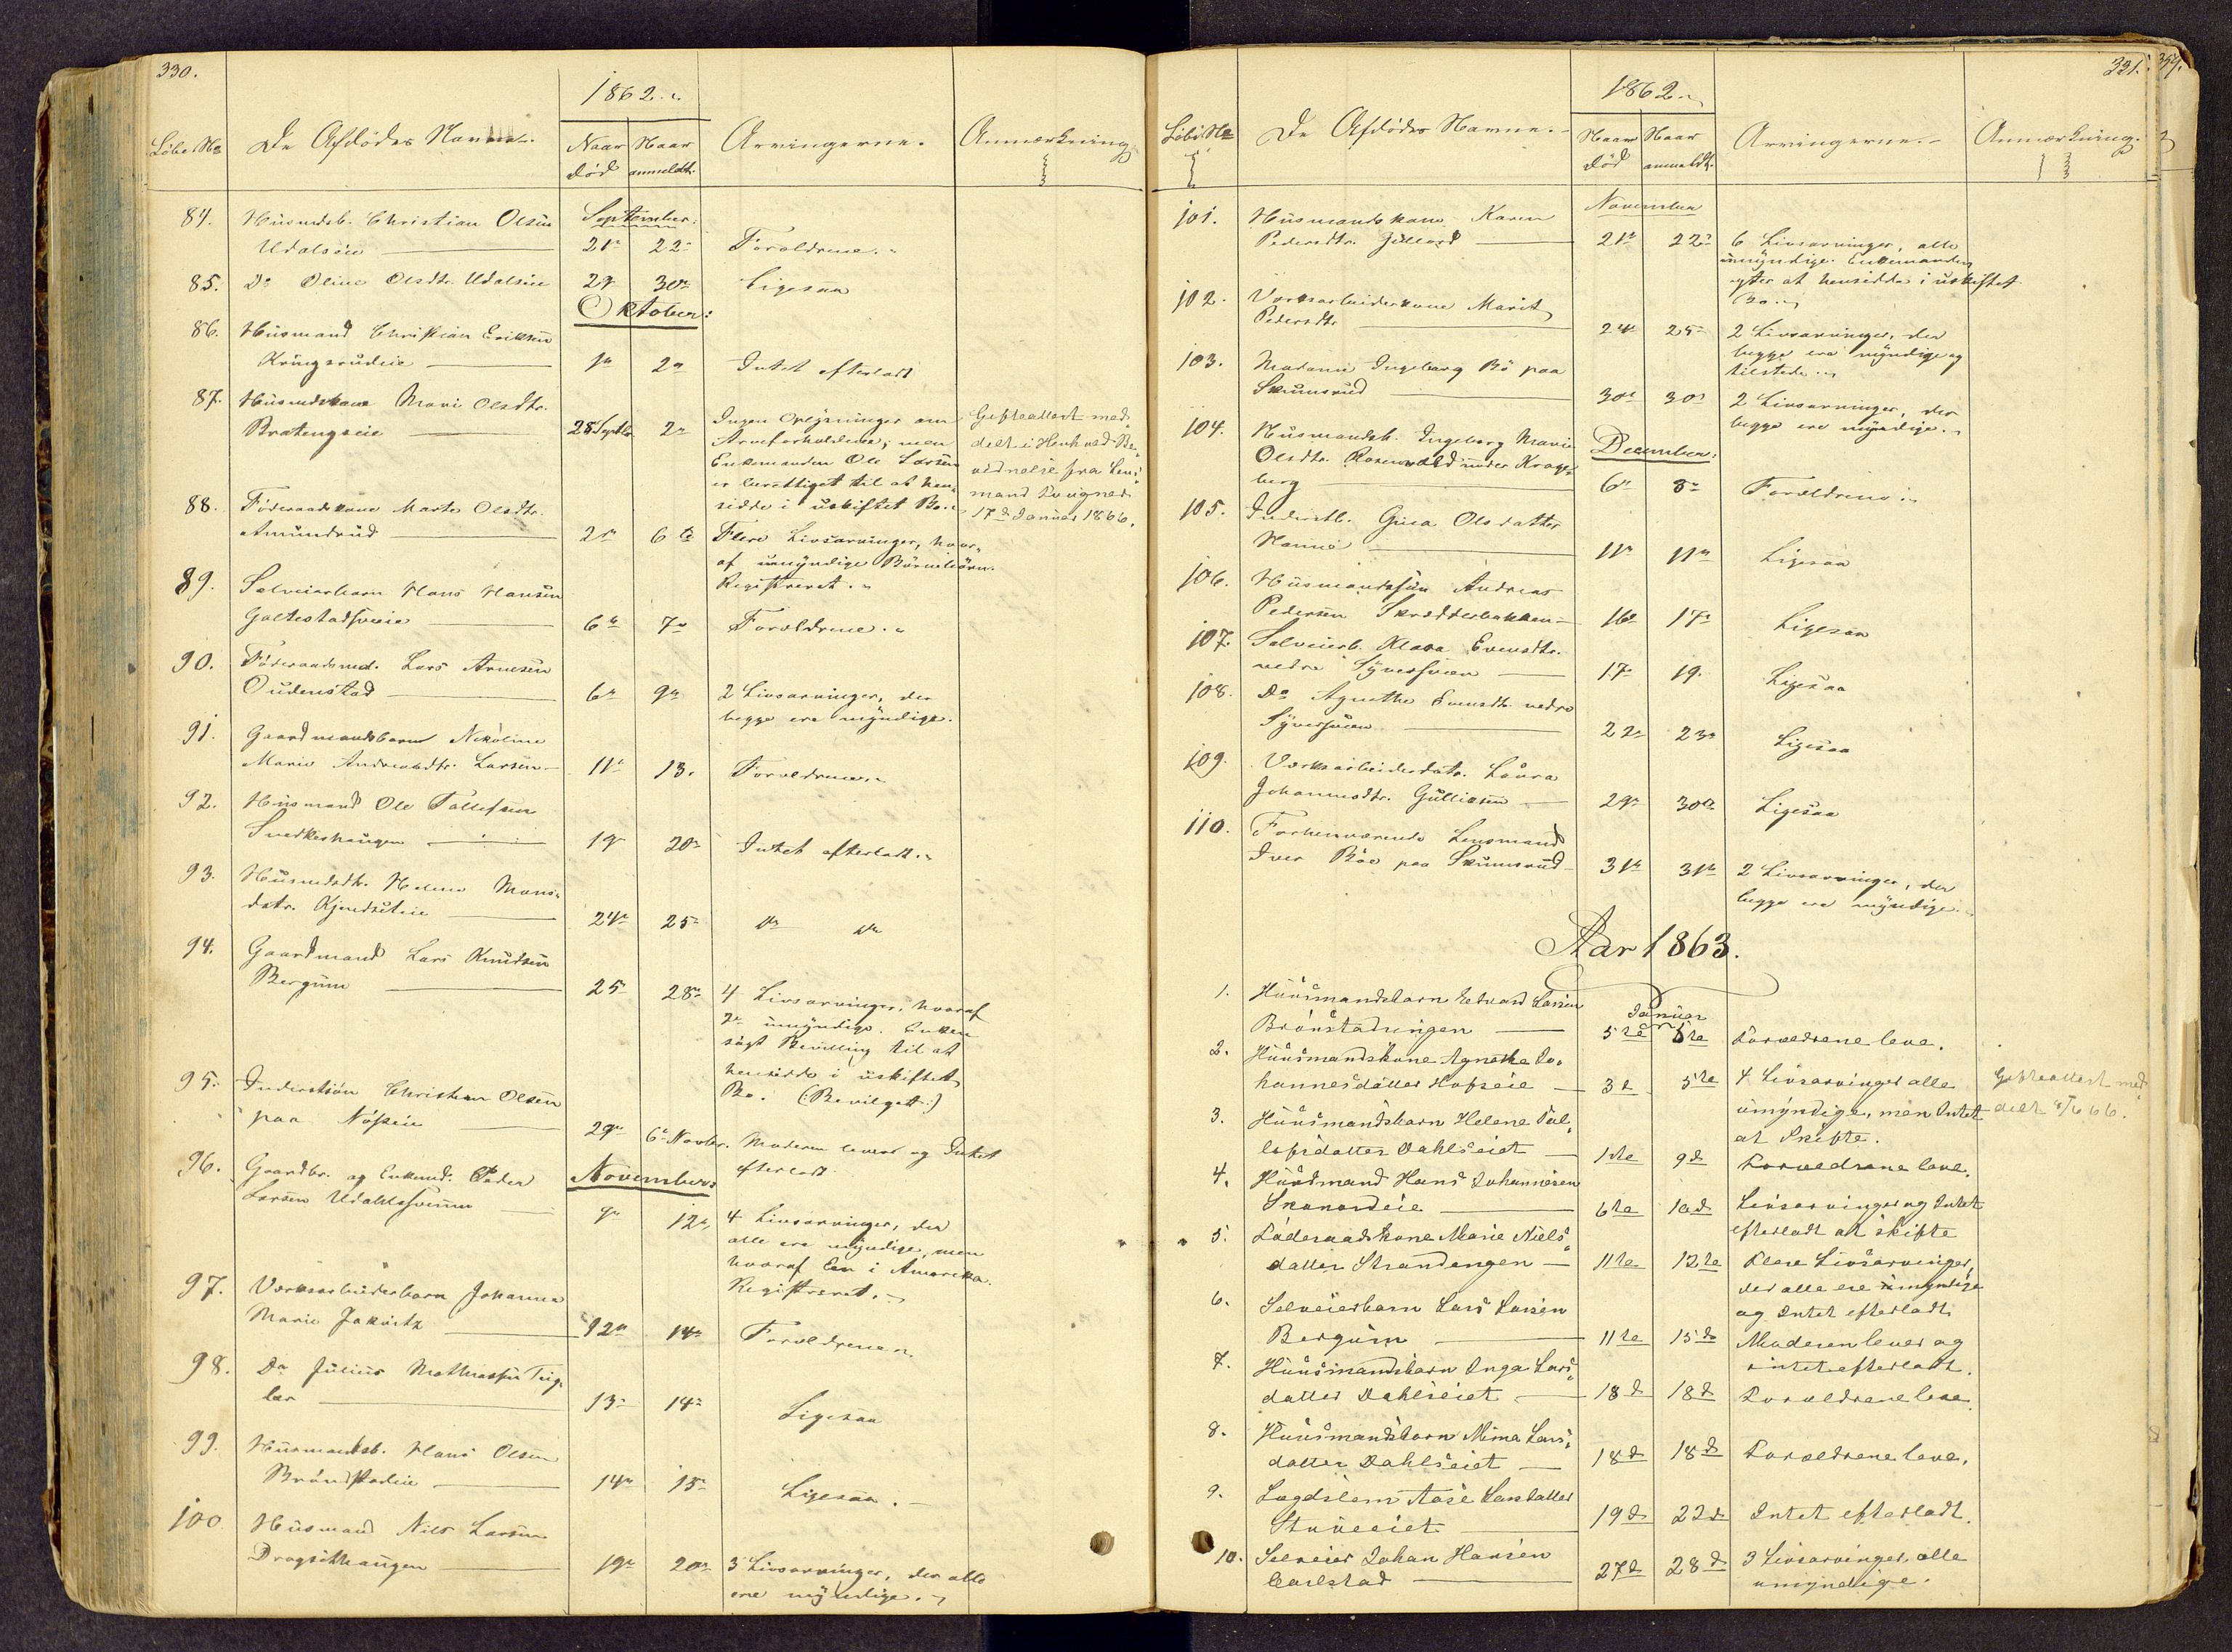 330.
1862.
Løbe No
De Afdødes Navne.
Naar død
Naar anmeldt.
Arvingerne.
Anmærkning
September:
84. Husmdsb. Christian Olsen
Udalseie 21 22 Forældrene.
85. Do Oline Olsdtr. Udalseie 29 30 Ligesaa
Oktober:
86. Husmand Christian Eriksen
Kringsrudeie 1 2 Intet efterladt
87. Husmdskone Mari Olsdtr.
Bratengseie 28 Septbr 2 Ingen Oplysninger om
Arveforholdene; men
Enkemanden Ole Larsen
er berettiget til at hen-
sidde i uskiftet Bo.
Gifteattest med-
delt i Henhold Be-
vidnelse fra Lens-
mand
17de Januar 1866.
88. Føderaadskone Marte Olsdtr.
Amundrud 2 6te Flere Livsarvinger, hvor-
af umyndige Børnebørn.
Registreret.
89. Selveierbarn Hans Hansen
Galtestadsveie 6 7 Forældrene.
90. Føderaadsmd. Lars Arnesen
Oudenstad 6 9 2 Livsarvinger, der
begge ere myndige.
91. Gaardmandsbarn Nikoline
Marie Andreasdtr. Larsen 11 13. Forældrene.
92. Husmand Ole Tollefsen
Snedkerhaugen 19 20 Intet efterladt.
93. Husmdsdtr. Helene Mons-
datr. 24 25 do do
94. Gaardmand Lars Knudsen
Bergum 25 28 4 Livsarvinger, hvoraf
2 umyndige. Enken
søgt Bevilling til at
hensidde i uskiftet
Bo. (:Bevilget:)
95. Inderstsøn Christian Olsen
paa Nøsseie 29 6 Novbr. Moderen lever og Intet
efterladt.
November:
96. Gaardbr. og Enkemd. Peder
Larsen 9 12 4 Livsarvinger, der
alle ere myndige, men
hvoraf Een i Amerika.
Registreret.
97. Værksarbeiderbarn Johanne
Marie 12 14 Forældrene.
98. Do Julius Mathiassen Teig-
len 13 14 Ligesaa
99. Husmandsb. Hans Olsen
Brønstadeie 14 15 Ligesaa.
100 Husmand Nils Larsen
19 20 3 Livsarvinger, der alle
ere myndige.
331.
1862.
Løbe No
De Afdødes Navne.
Naar død
Naar anmeldt.
Arvingerne.
Anmærkning.
November
101. Husmandskone Karen
Pedersdtr. 21 22 6 Livsarvinger, alle
umyndige. Enkemanden
agter at hensidde i uskiftet
Bo.
102. Værksarbeiderkone Marit
Pedersdtr 24 25 2 Livsarvinger, der
begge ere myndige og
tilstede.
103. Madame Ingeborg Bø paa
Skrinsrud 30 30 2 Livsarvinger, der
begge ere myndige.
December:
104. Husmandsb. Ingeborg Marie
Olsdtr. Rosenvold under Krags-
berg 6 8 Forældrene.
105. Inderstb. Gina Olsdatter
11 11 Ligesaa
106. Husmandssøn Andreas
Pedersen Skrædderbakken 16 17 Ligesaa
107. Selveierb. Klara Evensdtr.
nedre 17 19. Ligesaa
108. Do Agnethe Evensdtr. nedre
22 23 Ligesaa
109. Værksarbeiderdatr. Laura
Johannesdtr. Gulliksen 29 30 Ligesaa
110. Forhenværende Lensmand
Iver Bøe paa Skrinsrud 31te 31te 2 Livsarvinger, der
begge ere myndige.
Aar 1863.
Januar
1. Huusmandsbarn Edvard Larsen
Brønstadengen 5te 5te Forældrene leve.
2. Huusmandskone Agnethe Jo-
hannesdatter Hofseie 3e 5te 4 Livsarvinger alle
umyndige, men Intet
at Skifte.
Gifteattest med-
delt
3. Huusmandsbarn Helene Tol-
lefsdatter Dahlseiet 1ste 9de Forældrene leve.
4. Huusmand Hans Johannesen
6te 10de Livsarvinger og Intet
efterladt at skifte
5. Føderaadskone Marie Niels-
datter Strandengen 11te 12te Flere Livsarvinger,
der alle ere umyndige
og Intet efterladt
6. Selveierbarn Lars Larsen
Bergum 11te 15de Moderen lever og
intet efterladt.
7. Huusmandsbarn Inga Lars-
datter Dahlseiet 18de 18de Forældrene leve
8. Huusmandsbarn Mina Lars-
datter Dahlseiet 18de 18de Forældrene leve.
9. Lægdslem Aase Larsdatter
19de 22de Intet efterladt.
10. Selveier Johan Hansen
Carlstad 27de 28de 3 Livsarvinger, alle
umyndige.